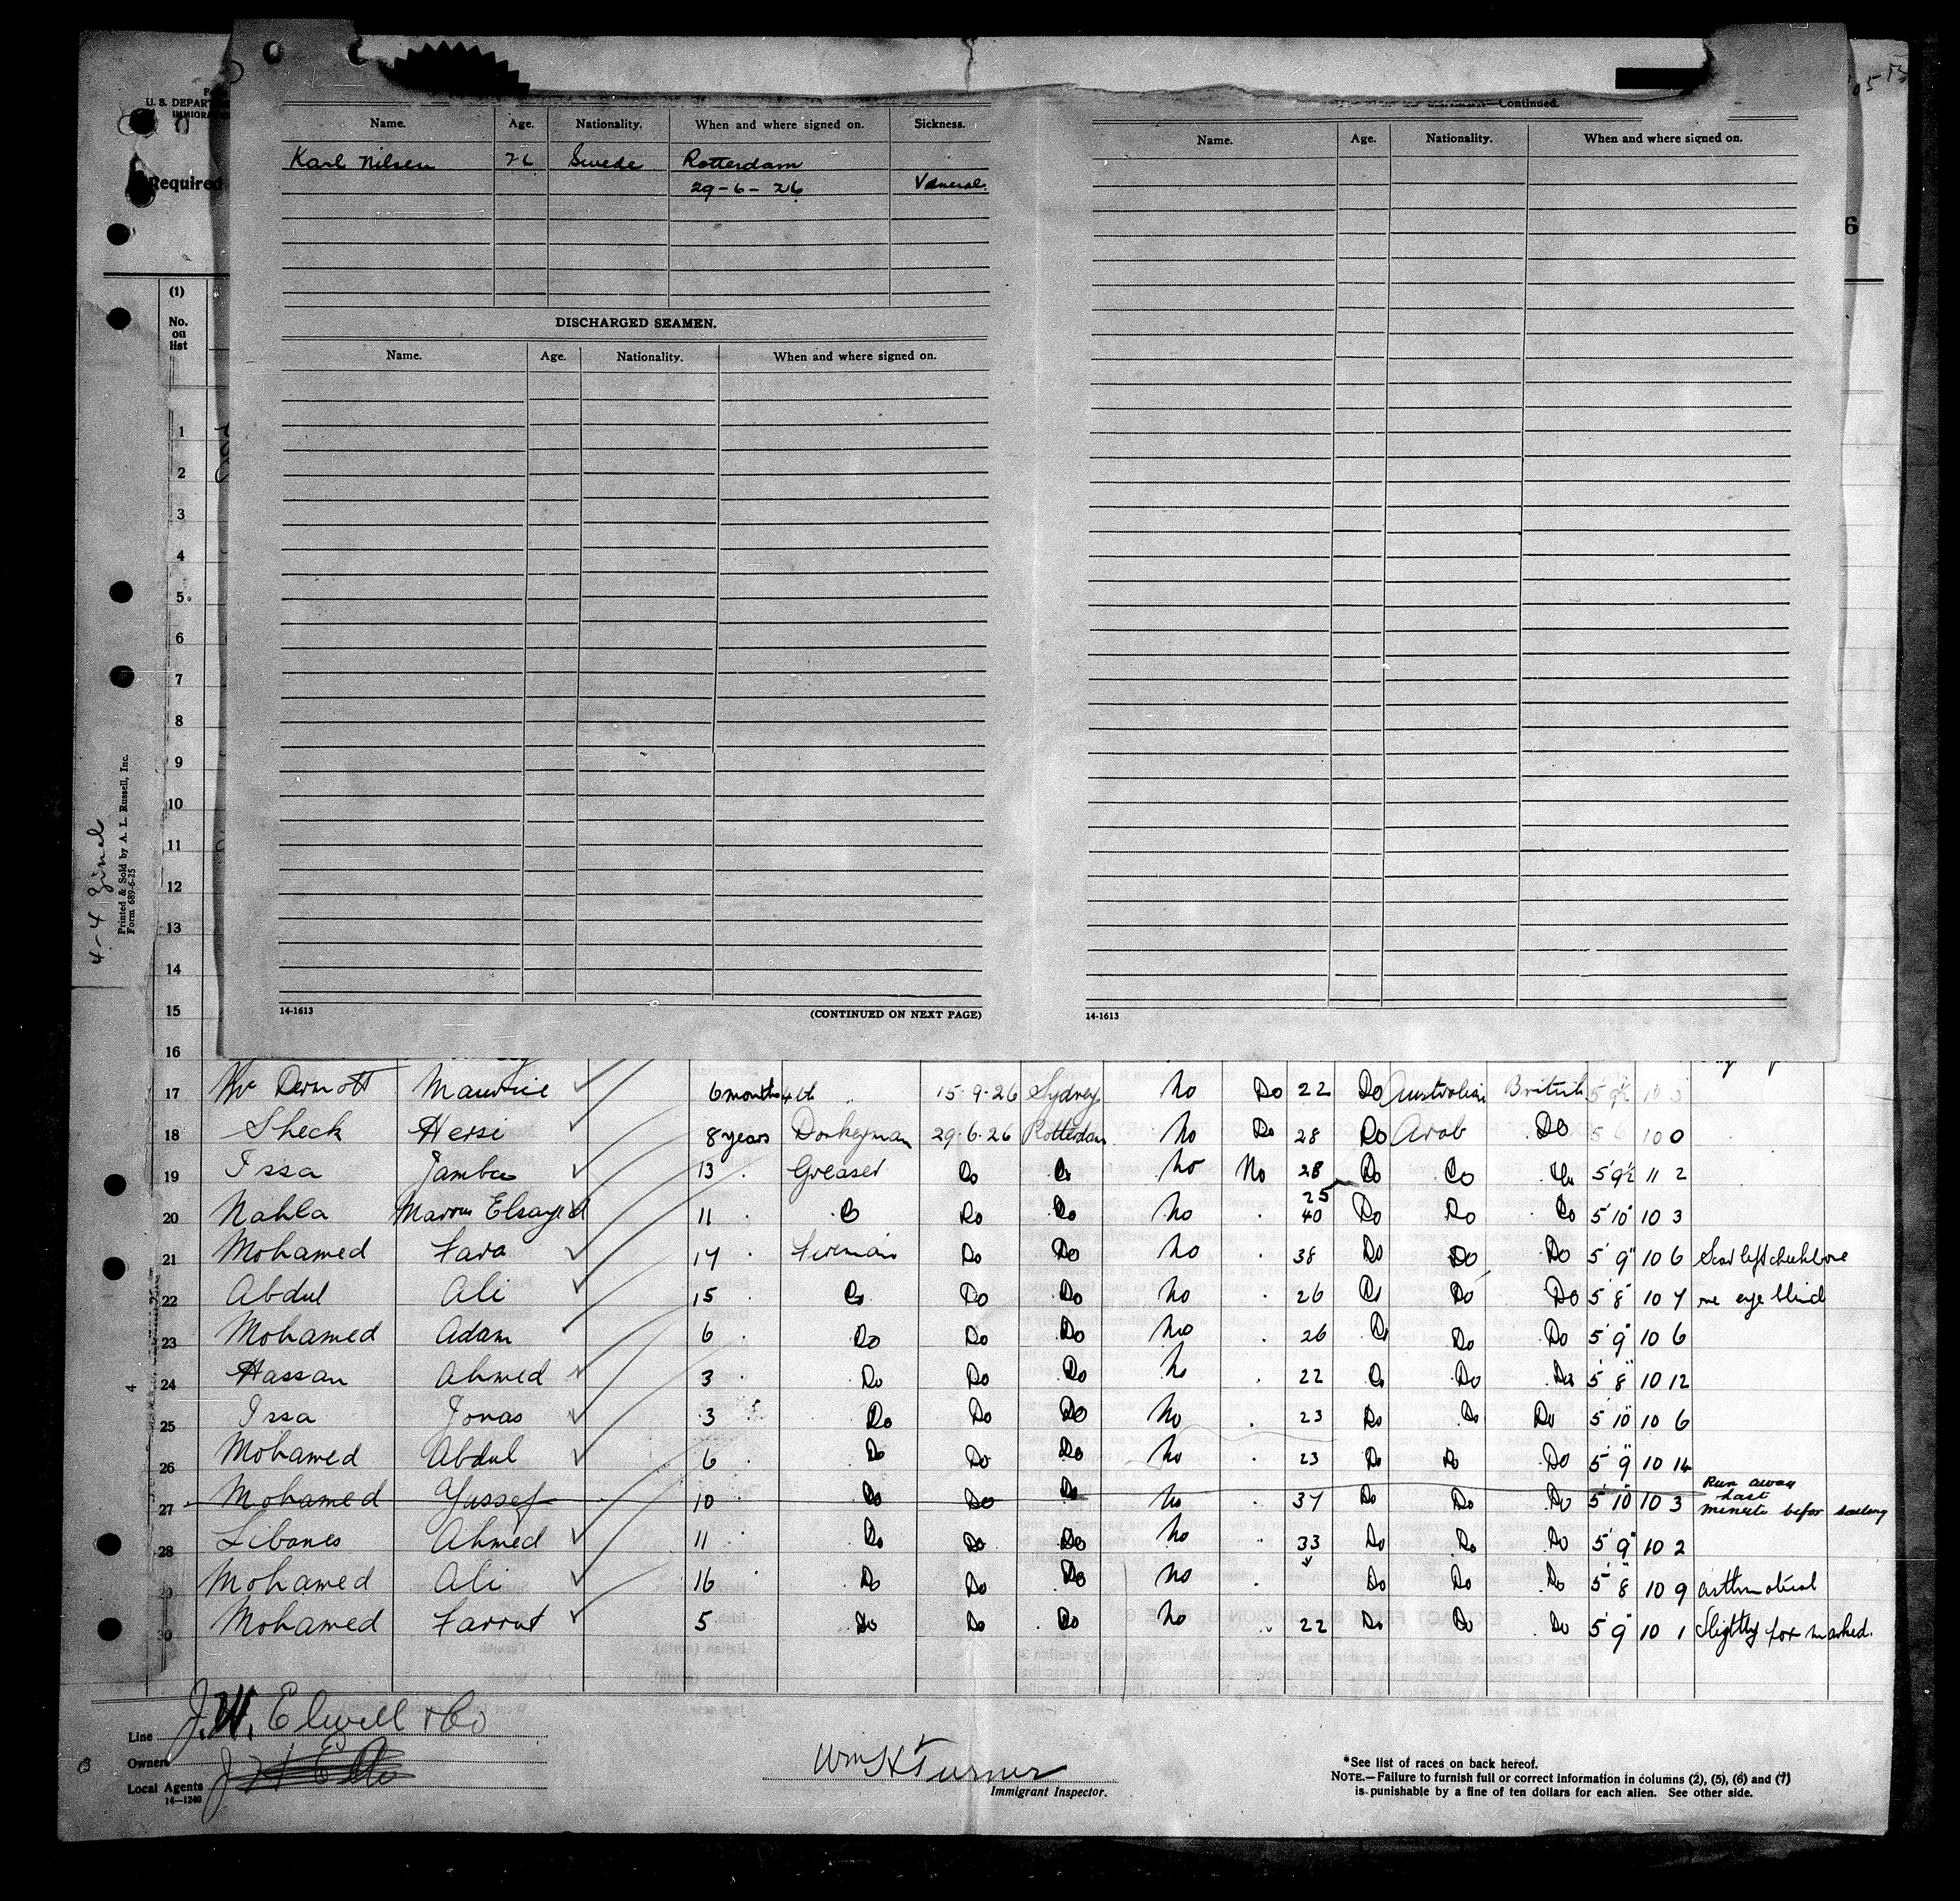 U. S. DEPART
IMMIGRA
Required
6
(1)
No.
on
list
—Continued.
Name. Age. Nationality. When and where signed on. Sickness.
Karl Nilsen 26 Swede Rotterdam
29-6-26 Veneral.
DISCHARGED SEAMEN.
Name. Age. Nationality. When and where signed on.
14-1613 (CONTINUED ON NEXT PAGE)
Name. Age. Nationality. When and where signed on.
14-1613
1
2
3
4
5
6
7
8
9
10
11
12
13
14
15
16
Printed & Sold by A. L. Russell, Inc.
Form 689-6-25
4
17 Mc Dermott Maurice 6 months 15-9-26 Sydney No Do 22 Do Australian British 5 9½ 10 3
18 Sheck Hersi 8 years Donkeyman 29-6-26 Rotterdam No Do 28 Do Arab Do 5 6 10 0
19 Issa Jamba 13 Greaser Do Do No No 28 Do Do Do 5 9½ 11 2
20 Nahla Elsayed 11 Do Do Do No 25 40 Do Do Do 5 10 10 3
21 Mohamed Fara 14 Fireman Do Do No 38 Do Do Do 5' 9" 10 6 Scar left cheekbone
22 Abdul Ali 15 Do Do Do No 26 Do Do Do 5' 8" 10 7 one eye blind
23 Mohamed Adam 6 Do Do Do No 26 Do Do Do 5' 9" 10 6
24 Hassan Ahmed 3 Do Do Do No 22 Do Do Do 5' 8" 10 12
25 Issa Jonas 3 Do Do Do No 23 Do Do Do 5' 10" 10 6
26 Mohamed Abdul 6 Do Do Do No 23 Do Do Do 5' 9" 10 14
27 Mohamed Yussef 10 Do Do Do No 37 Do Do Do 5' 10" 10 3 Run away last minute befor sailing
28 Libanes Ahmed 11 Do Do Do No 33 Do Do Do 5' 9" 10 2
29 Mohamed Ali 16 Do Do Do No Do Do Do 5' 8" 10 9
30 Mohamed Farrut 5 Do Do Do No 22 Do Do Do 5' 9" 10 1 Slightly pox marked.
Line J. W. Elwell & Co
Owners
Local Agents
14—1240
Wm K Turner
Immigrant Inspector.
*See list of races on back hereof.
NOTE.—Failure to furnish full or correct information in columns (2), (5), (6) and (7)
is punishable by a fine of ten dollars for each alien. See other side.